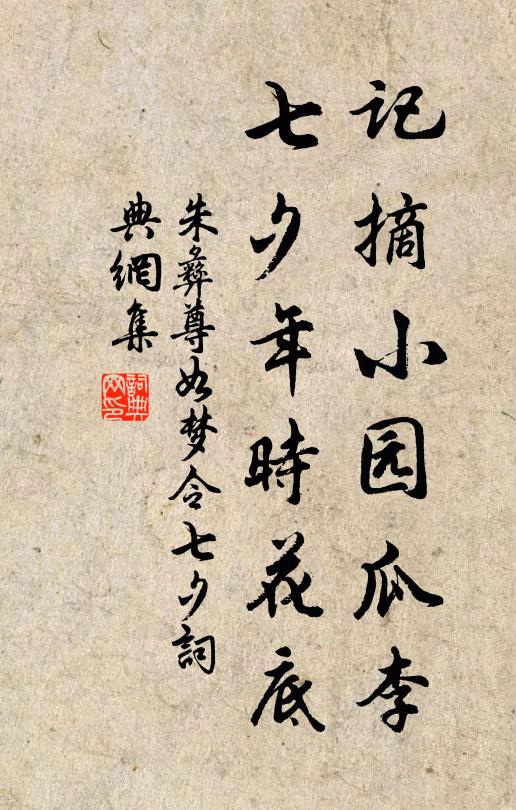 记摘小园瓜李
七夕年時花底
朱彝尊如梦令七夕詞
典網集
詞典网印